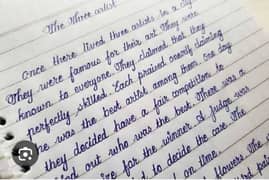 The three artist
Once there lived three artists in a
They were famous for their art. They were
known to everyone. They claimed that they
perfectly skilled. Each praised oneself claiming
he was the best artist among them. One day
they decided have a fair competition to
find out who was the best. There was a
for the winner. A judge was
to decide the case. The
on time.
flowers. The